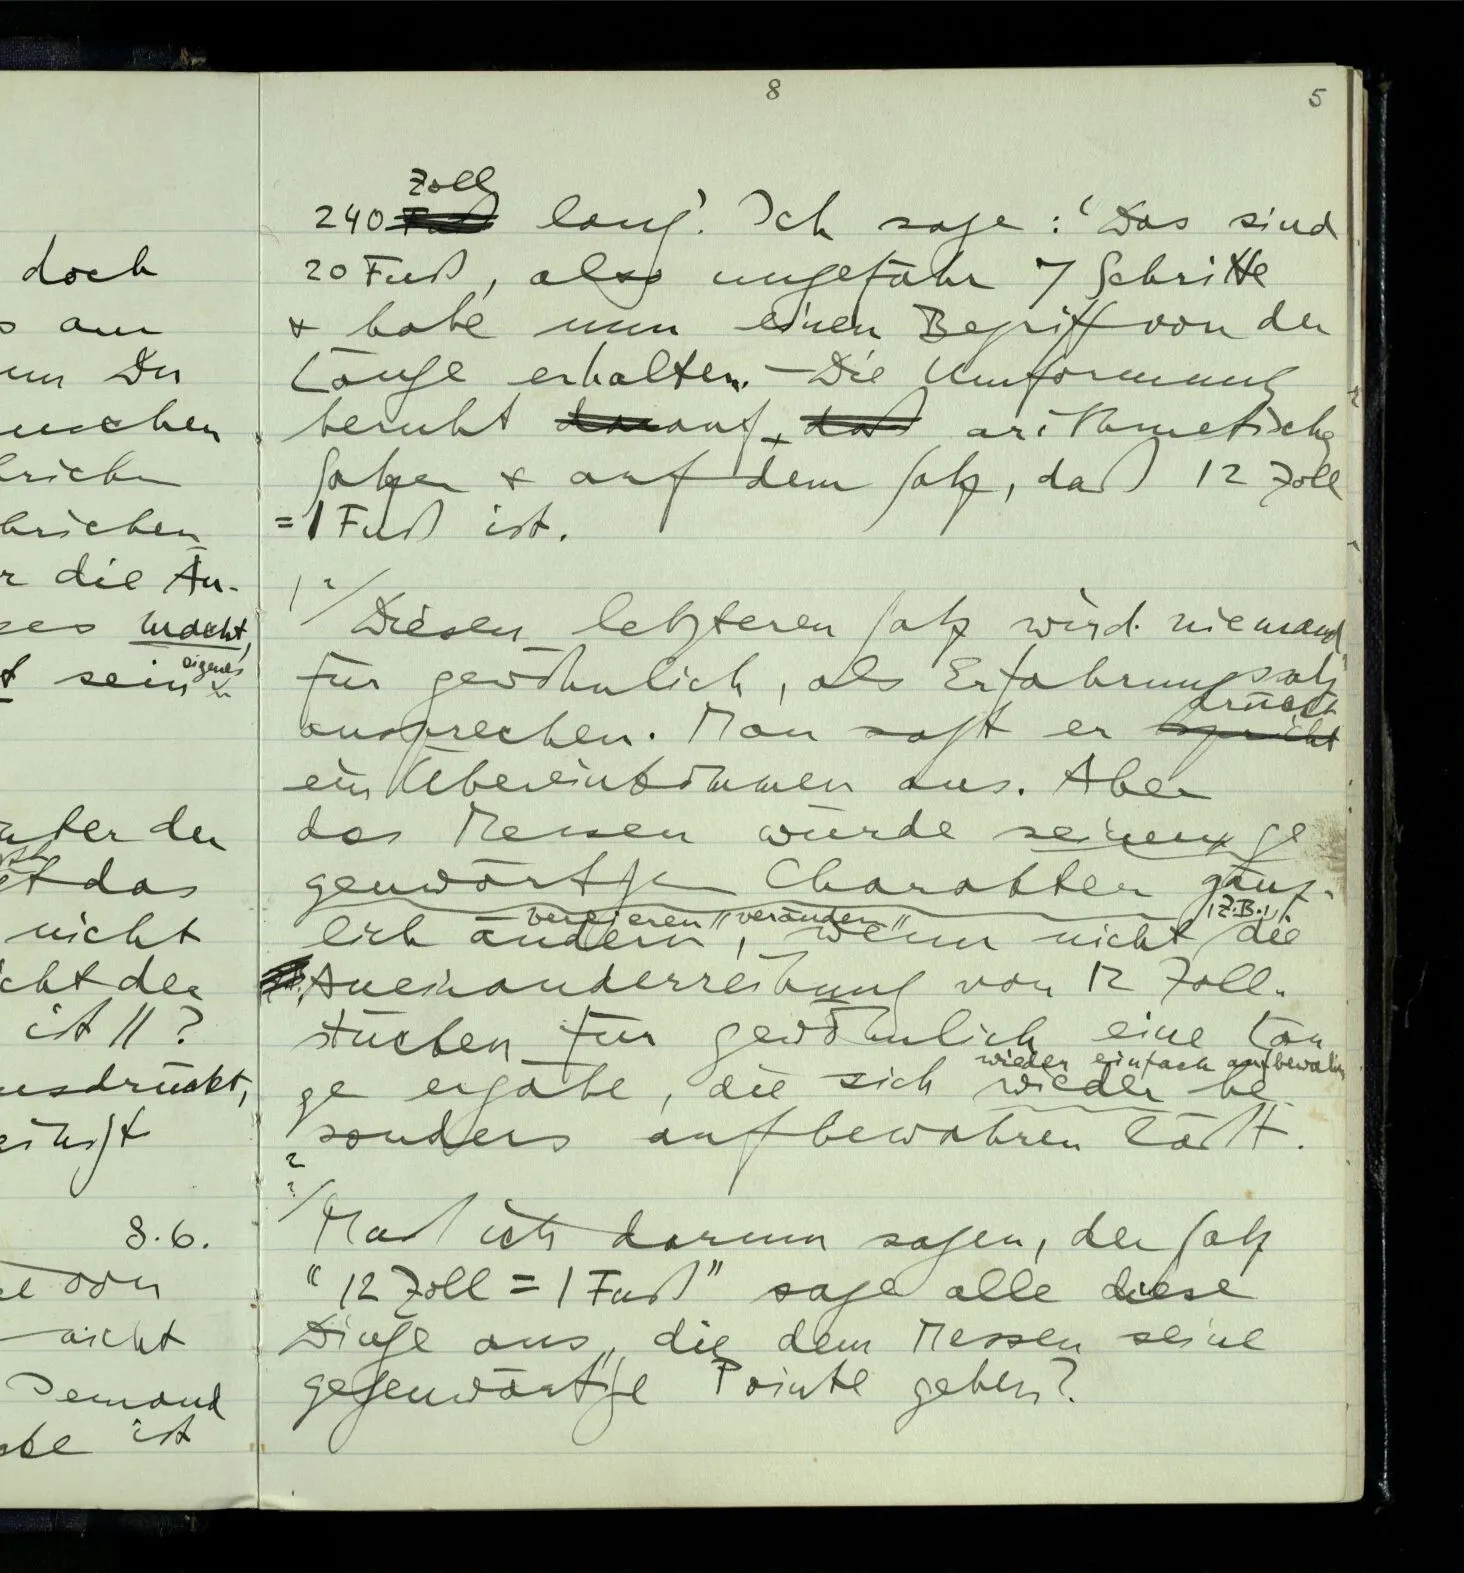 8
5
doch
am
Du
uschen
brichen
die Än-
macht,
sein eigenes
unter den
das
nicht
der
ist //?
ausdrückt,
8.6.
von
nicht
Jemand
ist
Zoll
240 Fuß lang'. Ich sage: 'Das sind
20 Fuß, also ungefähr 7 Schritte
& habe nun einen Begriff von der
Länge erhalten. – Die Umformung
beruht darauf, daß arithmetische
Sätzen & auf dem Satz, daß 12 Zoll
= 1 Fuß ist.
Diesen letzteren Satz wird niemand
für gewöhnlich, als Erfahrungssatz
aussprechen. Man sagt er spricht drückt
ein Übereinkommen aus. Aber
das Messen würde seinen ge
genwärtigen Charakter gänz-
verlieren // verändern // , z.B.,
lich ändern, wenn nicht die
Aneinanderreihung von 12 Zoll-
stücken für gewöhnlich eine Län
wieder einfach aufbewahren
ge ergäbe, die sich wieder be
sonders aufbewahren läßt.
Muß ich darum sagen, der Satz
"12 Zoll = 1 Fuß" sage alle diese
Dinge aus, die dem Messen seine
gegenwärtige Pointe geben?